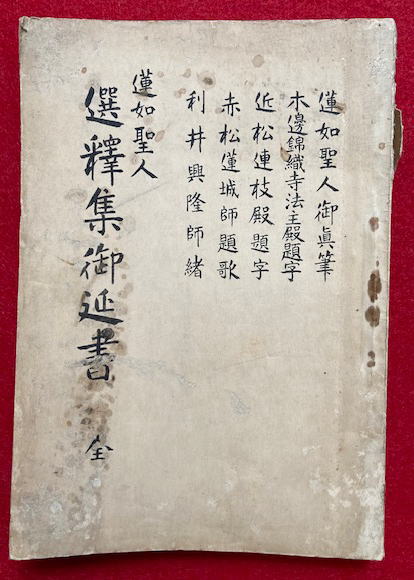 蓮如聖人御眞筆
木邊錦織寺法主殿題字
近松連枝殿題字
赤松蓮城師題歌
利井興隆師緒
蓮如聖人
選釋集御延書 全